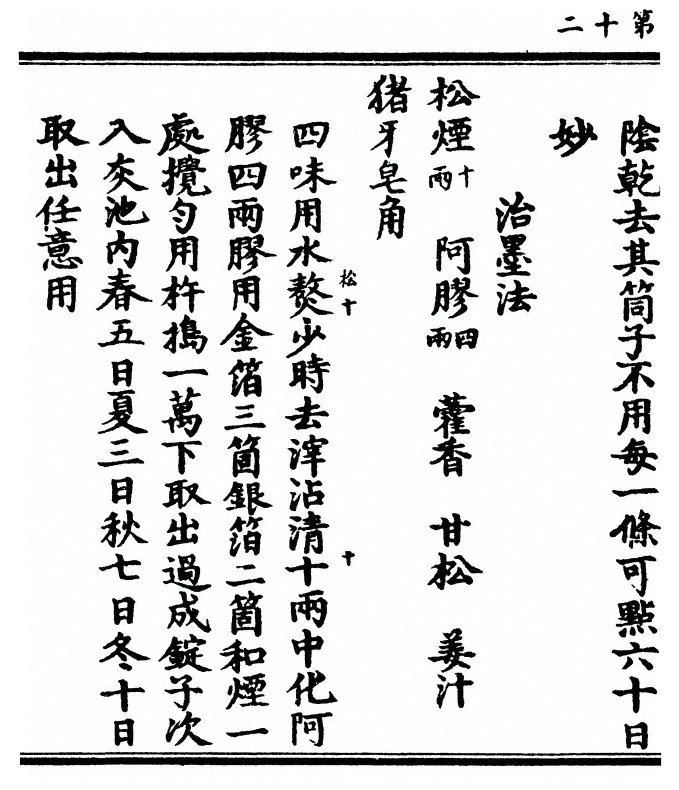 第十二
陰乾去其筒子不用每一條可點六十日
妙
治墨法
松煙十兩 阿膠四兩 藿香 甘松 姜汁
猪牙皂角
四味用水熬少時去滓沾清十兩中化阿
松十
十
膠四兩膠用金箔三箇銀箔二箇和煙一
處攪勻用杵搗一萬下取出過成錠子次
入灰池內春五日夏三日秋七日冬十日
取出任意用